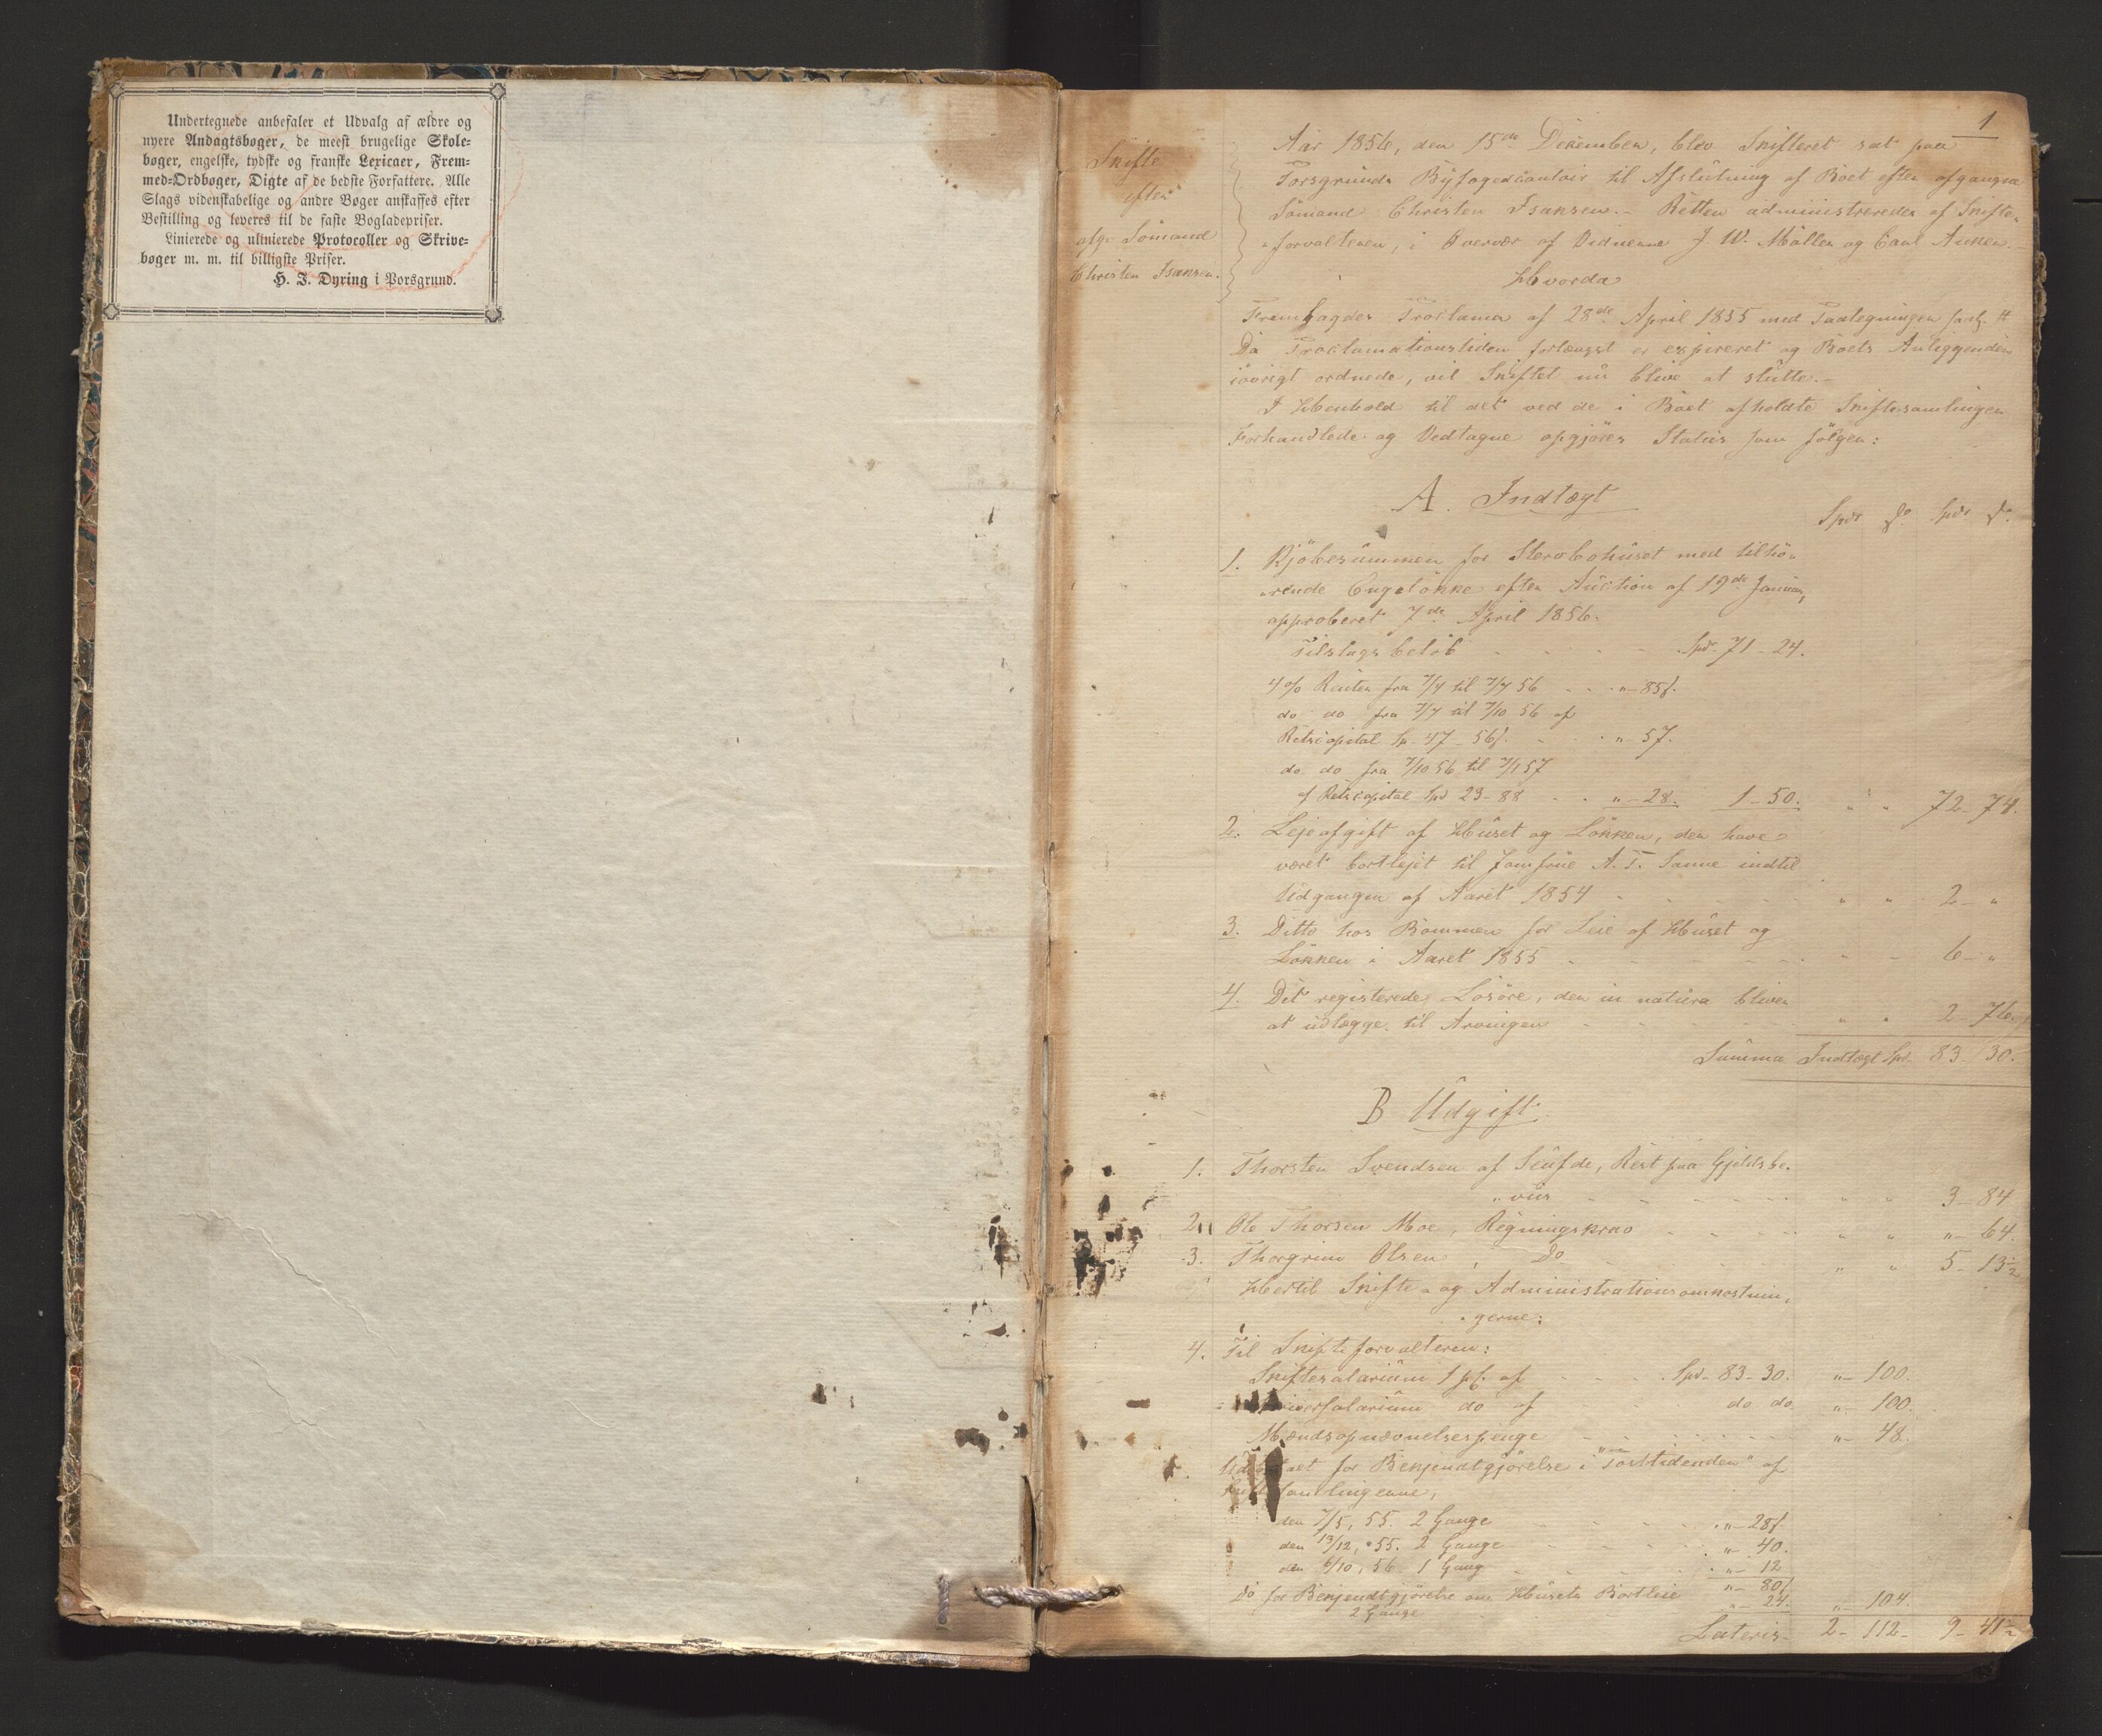 Undertegnede anbefaler et Udvalg af ældre og
nyere Andagtsbøger, de meest brugelige Skole-
bøger, engelske, tydske og franske Lexicaer, Frem-
med-Ordbøger, Digte af de bedste Forfattere. Alle
Slags videnskabelige og andre Bøger anskaffes efter
Bestilling og leveres til de faste Bogladepriser.
Linierede og ulinierede Protocoller og Skrive-
bøger m. m. til billigste Priser.
H. J. Dyring i Porsgrund.
1
Skifte
efter
afg. Sömand
Christen Isaksen.
Aar 1856, den 15de December, blev Skifteret sat paa
Porsgrunds Byfogedcontoir til Afslutning af Boet efter afgangne
Sömand Christen Isaksen. - Retten administreredes af Skifte-
forvalteren, i Overvær af Vidnerne J. W. Möller og Carl
Hvorda
Fremlagdes Proclama af 28de April 1855 med Paategninger
Da Proclamationstiden forlængst er expireret og Boets Anliggender
iövrigt ordnede, vil Skiftet nu blive at slutte. -
I Henhold til det ved de i Boet afholdte Skiftesamlinger
Forhandlede og Vedtagne opgjöres Status som fölger:
A. Indtægt
Spdr ß. Spdr ß.
1. Kjöbesummen for Stervbohuset med tilhö-
rende Engelökke efter Auction af 19de Januar,
approberet 7de April 1856.
Tilslagsbelöb - - - Spd. 71 - 24.
4 % Renter fra 7/4 til 7/7 56 - - " - 85ß.
do do fra 7/7 til 7/10 56 af
Restcapital Sp. 47 - 56ß. - - " - 57.
do do fra 7/10 56 til 7/1 57
af Restcapital Spd 23 - 88 - - " - 28. 1 - 50. " " 72 - 74.
2. Lejeafgift af Huset og Lökken, der have
været bortlejet til Jomfrue A. T. Sanne indtil
Udgangen af Aaret 1854 - - - " " 2 - "
3. Ditto hos Bommen for Leie af Huset og
Lökken i Aaret 1855 - - - - - 6 - "
4. Det registerede Lösöre, der in natura bliver
at udlægge til Arvingen - - - " " 2 - 76.
Summa Indtægt Spd. 83 - 30.
B Udgift.
1. Thorsten Svendsen af Seufde, Rest paa Gjeldsbe-
viis - - - " " 3 - 84
2. Ole Thorsen Moe, Regningskrav - - - " " " - 64.
3. Thorgrim Olsen, Do - - - " " 5 - 13½
Hertil Skifte- og Administrationsomkostnin-
gerne:
4. Til Skifteforvalteren:
Skiftesalarium 1 pC. af - - - Spd. 83 - 30. " - 100.
do af do do " - 100.
Mændsopnævnelsespenge - - - " - 48.
for Bekjendtgjörelse i "Posttidenden" af
den 7/5, 55. 2 Gange - - - " - 28ß
den 13/12, 55. 2 Gange - - - " - 40.
den 6/10, 56 1 Gang - - - " - 12
" - 80ß
Do for Bekjendtgjörelse om Husets Bortleie
2 Gange " - 24. " - 104.
Lateris - 2 - 112 - 9 - 41½